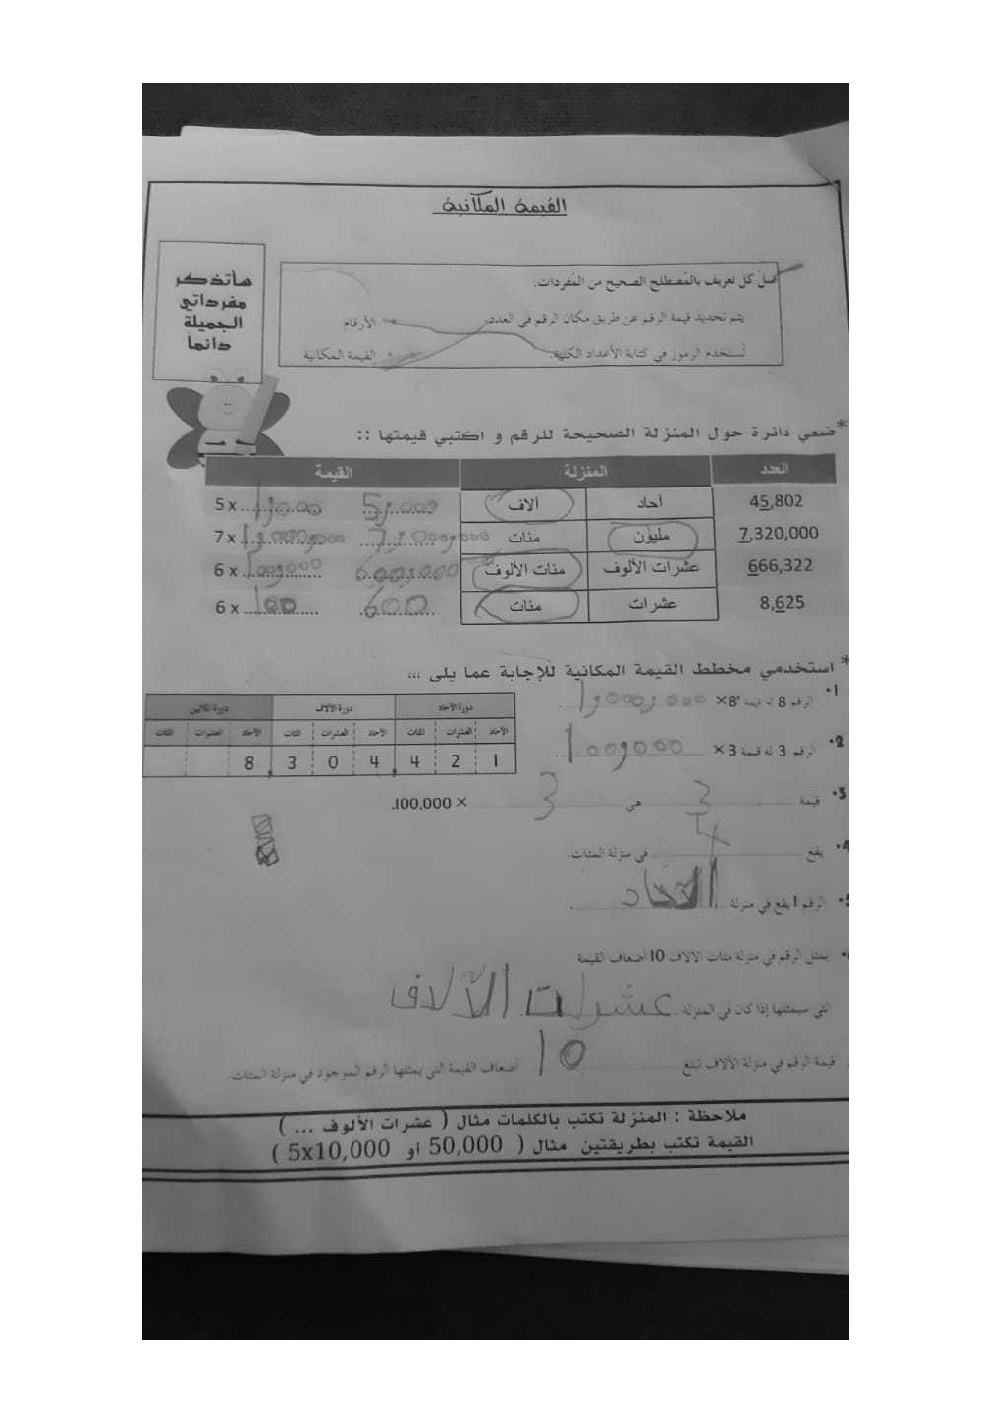 القيمة المكانية
سأتذكر
مفرداتي
الجميلة
دائما
صل كل تعريف بالمصطلح الصحيح من المفردات.
يتم تحديد قيمة الرقم عن طريق مكان الرقم في العدد. الأرقام
تُستخدم الرموز في كتابة الأعداد الكلية. القيمة المكانية
*ضعي دائرة حول المنزلة الصحيحة للرقم و اكتبي قيمتها ::
العدد المنزلة القيمة
45,802 آحاد آلاف 5 x 1,000 5,000
7,320,000 مليون مئات 7 x 1,000,000 7,000,000
666,322 عشرات الألوف مئات الألوف 6 x 100,000 600,000
8,625 عشرات مئات 6 x 100 600
* استخدمي مخطط القيمة المكانية للإجابة عما يلي ...
دورة الآحاد دورة الآلاف دورة الملايين
الآحاد العشرات المئات الآحاد العشرات المئات الآحاد العشرات المئات
1 2 4 4 0 3 8
1. الرقم 8 له قيمة 8× 1,000,000
2. الرقم 3 له قيمة 3 × 100,000
3. قيمة 3 هي 3 × 100,000.
4. يقع 4 في منزلة المئات.
5. الرقم 1 يقع في منزلة الآحاد.
يمثل الرقم في منزلة مئات الآلاف 10 أضعاف القيمة
التي سيمثلها إذا كان في المنزلة عشرات الآلاف
قيمة الرقم في منزلة الآلاف تبلغ 10 أضعاف القيمة التي يمثلها الرقم الموجود في منزلة المئات.
ملاحظة : المنزلة تكتب بالكلمات مثال ( عشرات الألوف ... )
القيمة تكتب بطريقتين مثال ( 50,000 أو 5x10,000 )